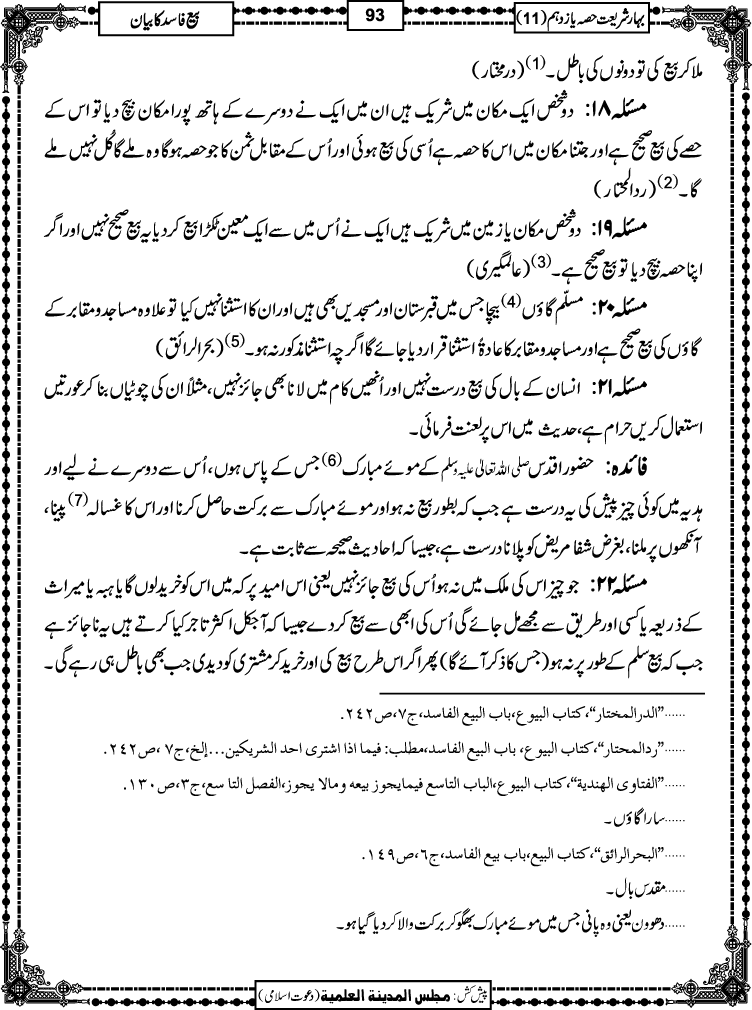 بہار شریعت حصہ یازدہم (11)
93
بیع فاسد کا بیان
ملا کر بیع کی تو دونوں کی باطل۔(1) (درمختار)
مسئلہ ۱۸: دو شخص ایک مکان میں شریک ہیں ان میں ایک نے دوسرے کے ہاتھ پورا مکان بیچ دیا تو اس کے
حصے کی بیع صحیح ہے اور جتنا مکان میں اس کا حصہ ہے اُسی کی بیع ہوئی اور اُس کے مقابل ثمن کا جو حصہ ہوگا وہ ملے گا کُل نہیں ملے
گا۔(2) (ردالمحتار)
مسئلہ ۱۹: دو شخص مکان یا زمین میں شریک ہیں ایک نے اُس میں سے ایک معین ٹکڑا بیع کر دیا یہ بیع صحیح نہیں اور اگر
اپنا حصہ بیچ دیا تو بیع صحیح ہے۔(3) (عالمگیری)
مسئلہ ۲۰: مسلّم گاؤں(4) بیچا جس میں قبرستان اور مسجدیں بھی ہیں اور ان کا استثنا نہیں کیا تو علاوہ مساجد و مقابر کے
گاؤں کی بیع صحیح ہے اور مساجد و مقابر کا عادۃً استثنا قرار دیا جائے گا اگرچہ استثنا مذکور نہ ہو۔(5) (بحرالرائق)
مسئلہ ۲۱: انسان کے بال کی بیع درست نہیں اور اُنھیں کام میں لانا بھی جائز نہیں، مثلاً ان کی چوٹیاں بنا کر عورتیں
استعمال کریں حرام ہے، حدیث میں اس پر لعنت فرمائی۔
فائدہ: حضور اقدس صلی اللہ تعالیٰ علیہ وسلم کے موئے مبارک(6) جس کے پاس ہوں، اُس سے دوسرے نے لیے اور
ہدیہ میں کوئی چیز پیش کی یہ درست ہے جب کہ بطور بیع نہ ہو اور موئے مبارک سے برکت حاصل کرنا اور اس کا غسالہ(7) پینا،
آنکھوں پر ملنا، بغرض شفا مریض کو پلانا درست ہے، جیسا کہ احادیث صحیحہ سے ثابت ہے۔
مسئلہ ۲۲: جو چیز اس کی ملک میں نہ ہو اُس کی بیع جائز نہیں یعنی اس امید پر کہ میں اس کو خرید لوں گا یا ہبہ یا میراث
کے ذریعہ یا کسی اور طریق سے مجھے مل جائے گی اُس کی ابھی سے بیع کر دے جیسا کہ آجکل اکثر تاجر کیا کرتے ہیں یہ ناجائز ہے
جب کہ بیع سلم کے طور پر نہ ہو (جس کا ذکر آئے گا) پھر اگر اس طرح بیع کی اور خرید کر مشتری کو دیدی جب بھی باطل ہی رہے گی۔
......”الدرالمختار“، كتاب البيوع، باب البيع الفاسد، ج٧، ص٢٤٢.
......”ردالمحتار“، كتاب البيوع، باب البيع الفاسد، مطلب: فيما اذا اشترى احد الشريكين...إلخ، ج٧، ص٢٤٢.
......”الفتاوى الهندية“، كتاب البيوع، الباب التاسع فيمايجوز بيعه ومالا يجوز، الفصل التاسع، ج٣، ص١٣٠.
......سارا گاؤں۔
......”البحرالرائق“، كتاب البيع، باب بيع الفاسد، ج٦، ص١٤٩.
......مقدس بال۔
......دھوون یعنی وہ پانی جس میں موئے مبارک بھگو کر برکت والا کر دیا گیا ہو۔
پیش کش: مجلس المدینة العلمیة (دعوت اسلامی)